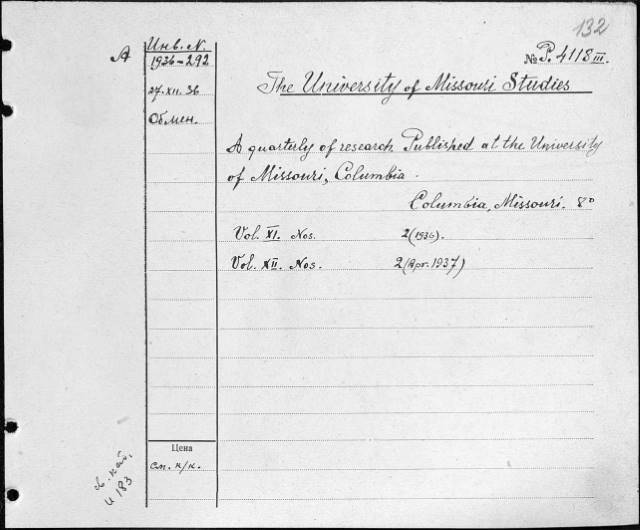 132
А
Инв. N.
1936-292
27.XII.36
Обмен.
№ P. 4118 III.
The University of Missouri Studies
A quarterly of research Published at the University
of Missouri, Columbia.
Columbia, Missouri. 8º
Vol. XI. Nos. 2 (1936).
Vol. XII. Nos. 2 (Apr. 1937)
Цена
см. к/к.
и 183